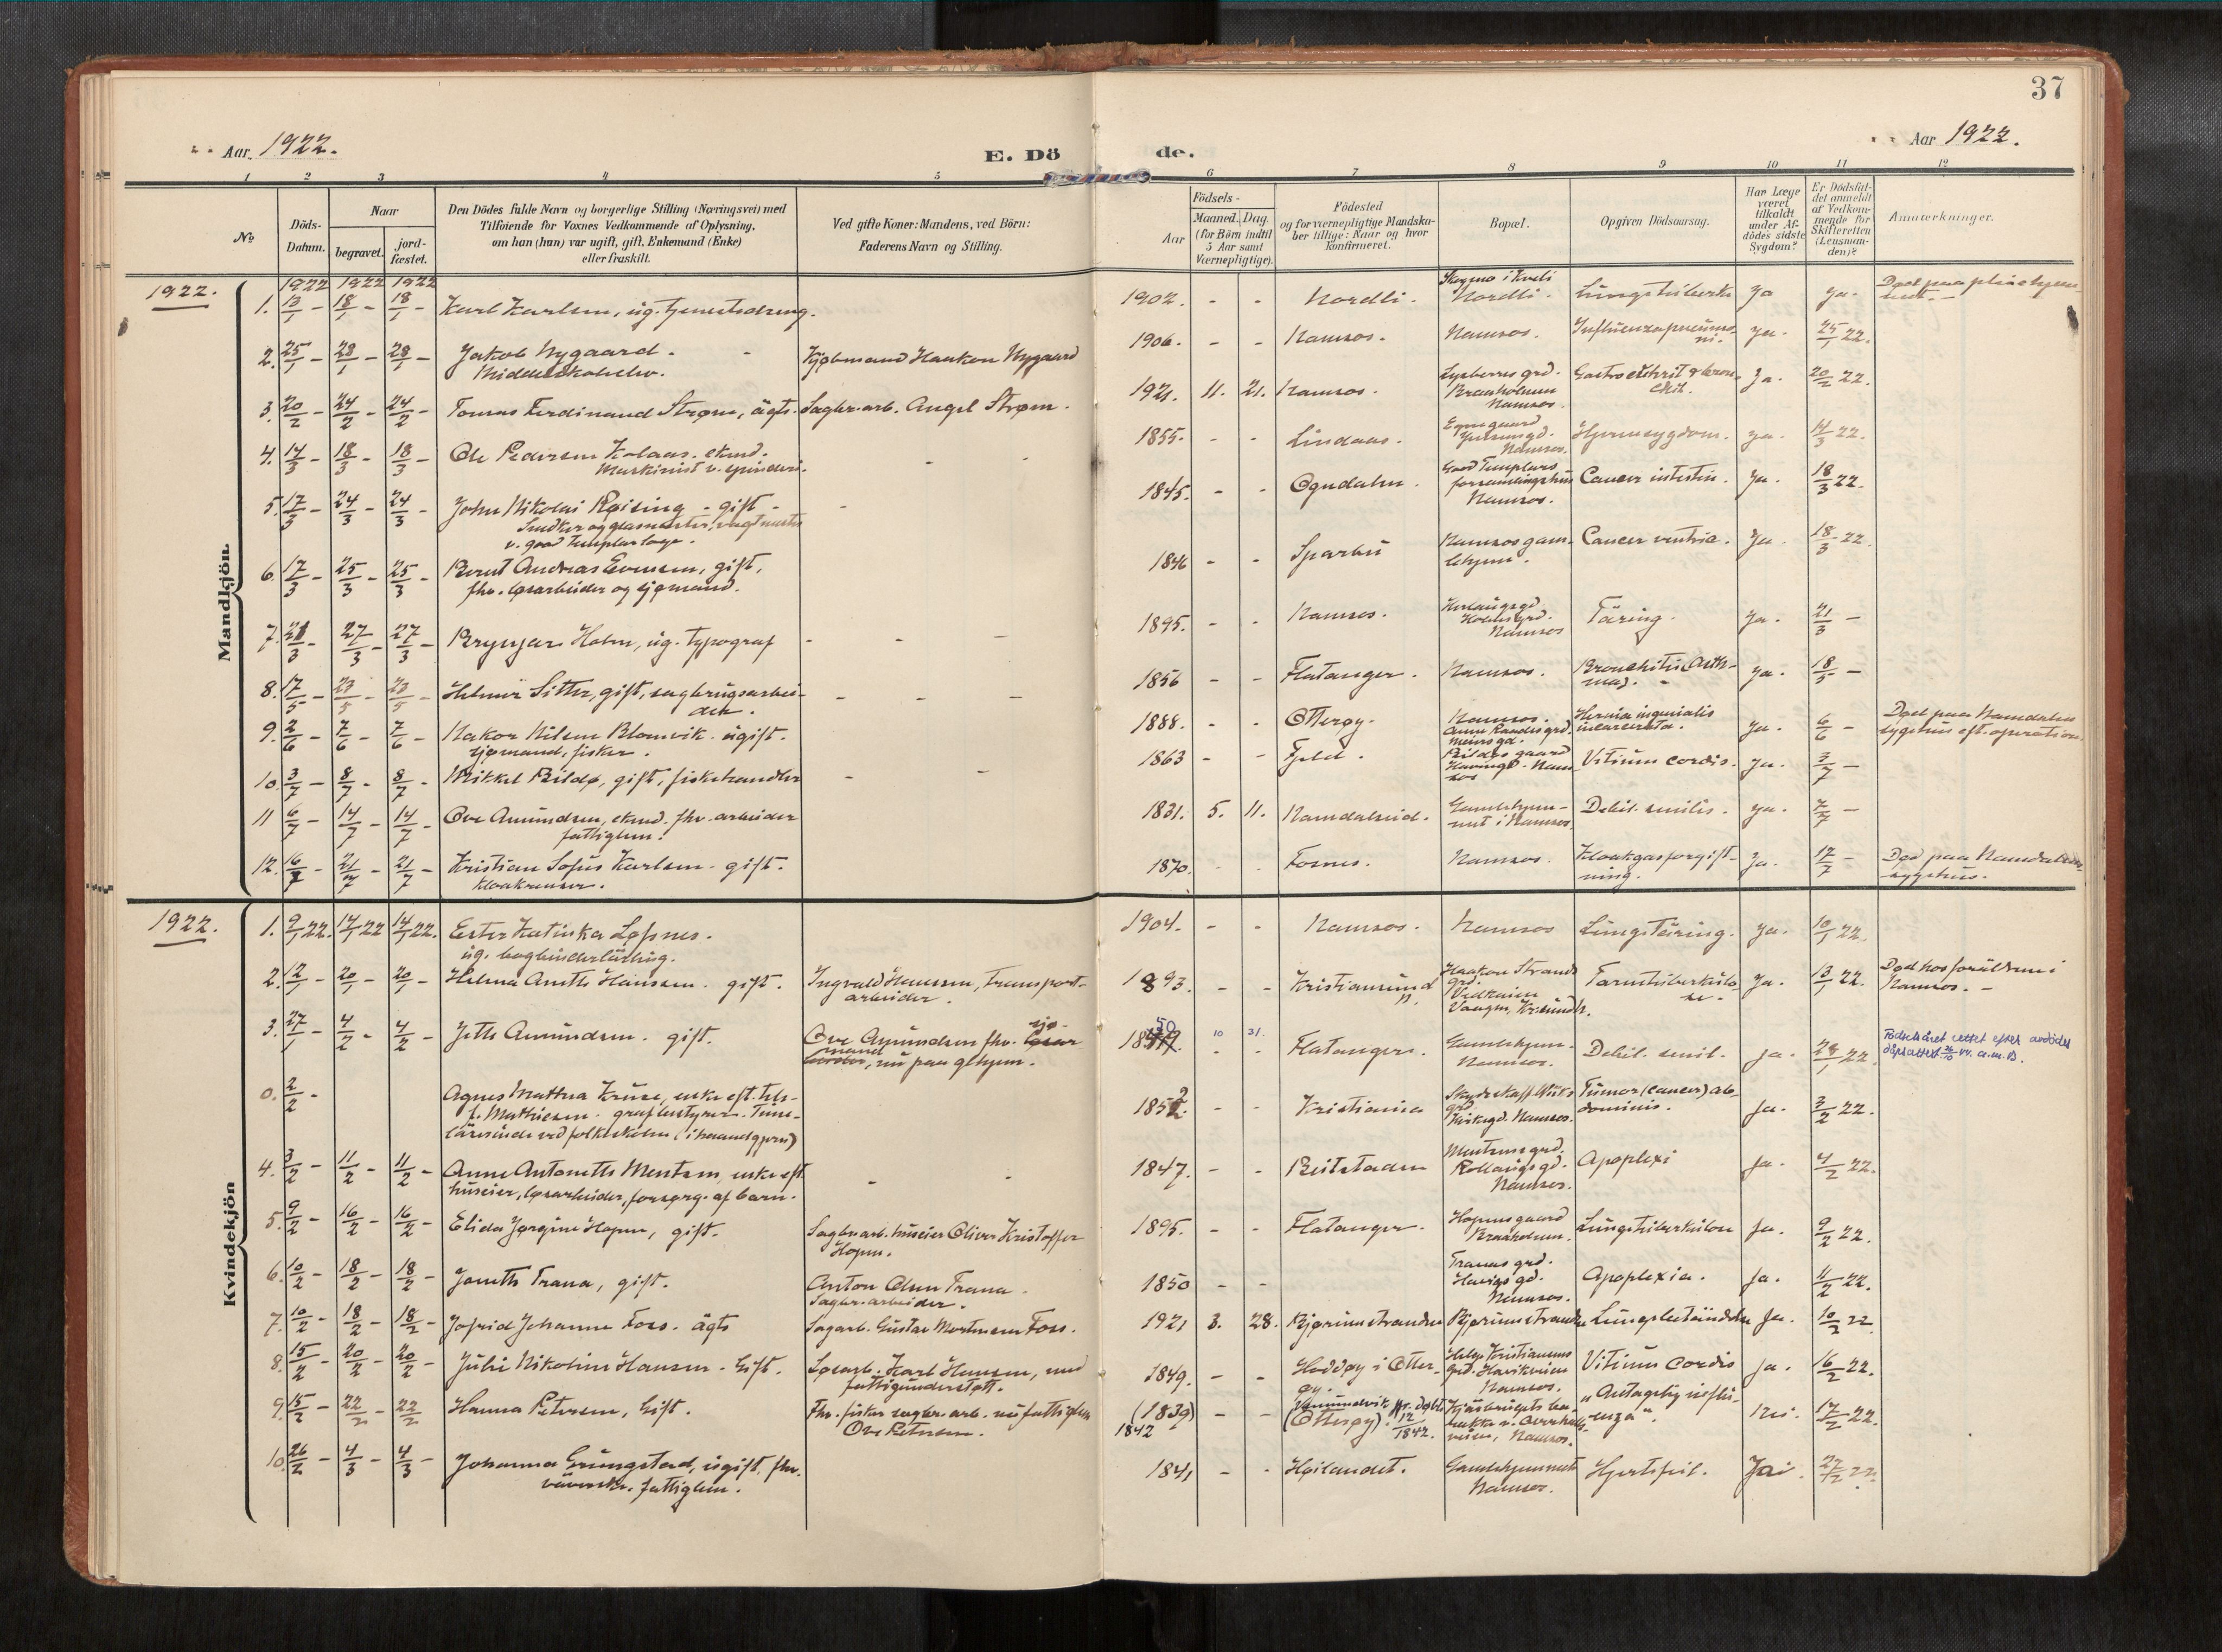 37
Aar 1922.
E. Dö
de.
Aar 1922.
1 2 3 4 5 6 7 8 9 10 11 12
No
Döds-
Datum.
Naar
begravet.
jord-
fæstet.
Den Dödes fulde Navn og borgerlige Stilling (Næringsvei) med
Tilföiende for Voxnes Vedkommende af Oplysning,
om han (hun) var ugift, gift, Enkemand (Enke)
eller fraskilt.
Ved gifte Koner: Mandens, ved Börn:
Faderens Navn og Stilling.
Födsels-
Aar
Maaned. Dag.
(for Börn indtil
5 Aar samt
Værnepligtige).
Födested
og for værnepligtige Mandska-
ber tillige: Naar og hvor
konfirmeret.
Bopæl.
Opgiven Dödsaarsag.
Har Læge
været
tilkaldt
under Af-
dödes sidste
Sygdom?
Er Dödsfal-
det anmeldt
af Vedkom-
mende for
Skifteretten
(Lensman-
den)?
Anmærkninger.
Mandkjön.
1922.
1922 1922 1922
1. 13/1 - 18/1 - 18/1 - Karl Karlsen, ug. tjenestedreng. 1902. - - Nordli. Nordli. Lungetuberk. Ja ja.
2. 25/1 - 28/1 - 28/1 - Jakob Nygaard. - Kjøbmand Haakon Nygaard 1906. - - Namsos. Namsos. Influenzapneumo- ja. 25/1 22.
Middelskoleelev. ni.
3. 20/2 - 24/2 - 24/2 - Tomas Ferdinand Strøm, ägts. Sagbr. arb. Angel Strøm. 1921. 11. 21. Namsos. Ja. 20/2 22.
Namsos.
4. 14/3 - 18/3 - 18/3 - Ole Pedersen Kolaas. ekmd. 1855. - - Lindaas. Hjernesygdom. ja. 14/3 22.
Maskinist v. spinderi. Namsos.
5. 17/3 - 24/3 - 24/3 - John Nikolai Røising - gift - 1845. - - Ogndalen. Good Templars Cancer intestin. Ja. 18/3 22.
Snedker og glasmester, vagtmester forsamlingshus
v. good templar loge. Namsos.
6. 17/3 - 25/3 - 25/3 - Bernt Andreas Evensen, gift, 1846 - - Sparbu Namsos gam- Cancer ventric. Ja. 18/3 22.
fhv. løsarbeider og sjømand. lehjem.
7. 21/3 - 27/3 - 27/3 - Brynjar Holm, ug. typograf - - - 1895. - - Namsos. Namsos Täring. Ja. 21/3 -
8. 17/5 - 23/5 - 23/5 - Helmer Sitter, gift, sagbrugsarbei- - - - 1856 - - Flatanger. Namsos. Bronchitis (Asth- ja. 18/5 -
der. ma).
9. 2/6 - 7/6 - 7/6 - Hakon Nilsen Blomvik. ugift. 1888. - - Otterøy. Namsos. Hernia inguinalis ja. 6/6 - Død paa Namdalens
sjømand, fisker. incarcerata. sygehus eft. operation.
10. 3/7 - 8/7 - 8/7 - Mikkel Reildø, gift, fiskehandler - - 1863 - - Fjeld. Vitium cordis. Ja. 3/7 -
11 6/7 - 14/7 - 14/7 - Ove Amundsen, ekmd. fhv. arbeider 1831. 5. 11. Namdalseid. Gamlehjem- Debil. senilis. ja. 7/7 -
fattiglem. met i Namsos.
12. 16/7 - 21/7 - 21/7 - Kristian Sofus Karlsen. gift. 1870. - - Fosnes. Namsos. Kloakgasforgift- Ja. 17/7 - Død paa Namdalens
Kloakrenser. ning. sygehus.
Kvindekjön
1922.
1. 9/1 22. 14/1 22 14/1 22. Ester Katinka Løfsnes. 1904. - - Namsos. Namsos Lungetäring. ja. 10/1 22.
ug. bogbinderlärling.
2. 12/1 - 20/1 - 20/1 - Helma Anette Hanssen. gift. Ingvald Hanssen, Transport- 1893. - - Kristiansund Haakon Strands Tarmtuberkulo- Ja. 13/1 22. Død hos foräldrene i
arbeider. N. grd. se. Namsos. -
3. 27/1 - 4/2 - 4/2 - Jette Amundsen. gift. Ove Amundsen fhv. sjø- 1850 10 31. Flatanger. Gamlehjem. Debil. senil. ja. 28/1 22. Fødselsåret rettet efter avdødes
mand, nu paa glhjem. Namsos. dåpsattest
0. 2/2 - Agnes Mathea Kruse, enke eft. 1852. - - Kristiania Tumor (cancer) ab- Ja. 3/2 22.
f. Mathiesen. Time- dominis.
lärerinde ved folkeskolen (i haandgjern) Namsos.
4. 3/2 - 11/2 - 11/2 - Anne Antonette Mentsen, enke eft. - - 1847. - - Beitstaden Mentsens grd. Apoplexi Ja. 4/2 22.
huseier, løsarbeider, forsørg. af barn. Namsos.
5. 9/2 - 16/2 - 16/2 - Elida Jørgine Hopen, gift. Sagbr. arb. huseier Oliver Kristoffer 1895. - - Flatanger. Hopens gaard Lungetuberkulose Ja. 9/2 22.
Hopen. Braaholmen.
6. 10/2 - 18/2 - 18/2 - Janette Trana, gift. Anton Olsen Trana 1850 - - Tranas grd. Apoplexia. Ja. 11/2 22.
Sagbr. arbeider. Namsos.
7. 10/2 - 18/2 - 18/2 - Jofrid Johanne Foss. ägts Sagarb. Gustav Mortensen Foss. 1921 3. 28. Bjørumstranden Bjørumstranden Lungebetändelse Ja. 10/2 22.
8. 15/2 - 20/2 - 20/2 - Julie Nikoline Hansen - Gift. Løsarb. Karl Hansen, med 1849. - - Hoddøy i Otter- Helge Kristiansens Vitium cordis Ja. 16/2 22.
fattigunderstøtt. øy. Namsos.
9. 15/2 - 22/2 - 22/2 Hanna Petersen, Gift. Fhv. fisker sagbr. arb. nu fattiglem (1839) - - (Otterøy). "Antagelig influ- Nei. 17/2 22.
Ove Petersen. 1842 12/1842. Namsos. enza".
10. 26/2 - 4/3 - 4/3 - Johanna Grungstad, ugift, fhv. 1841 - - Høilandet. Gamlehjemmet Hjertefeil. Ja. 27/2 22.
väverske, fattiglem. Namsos.